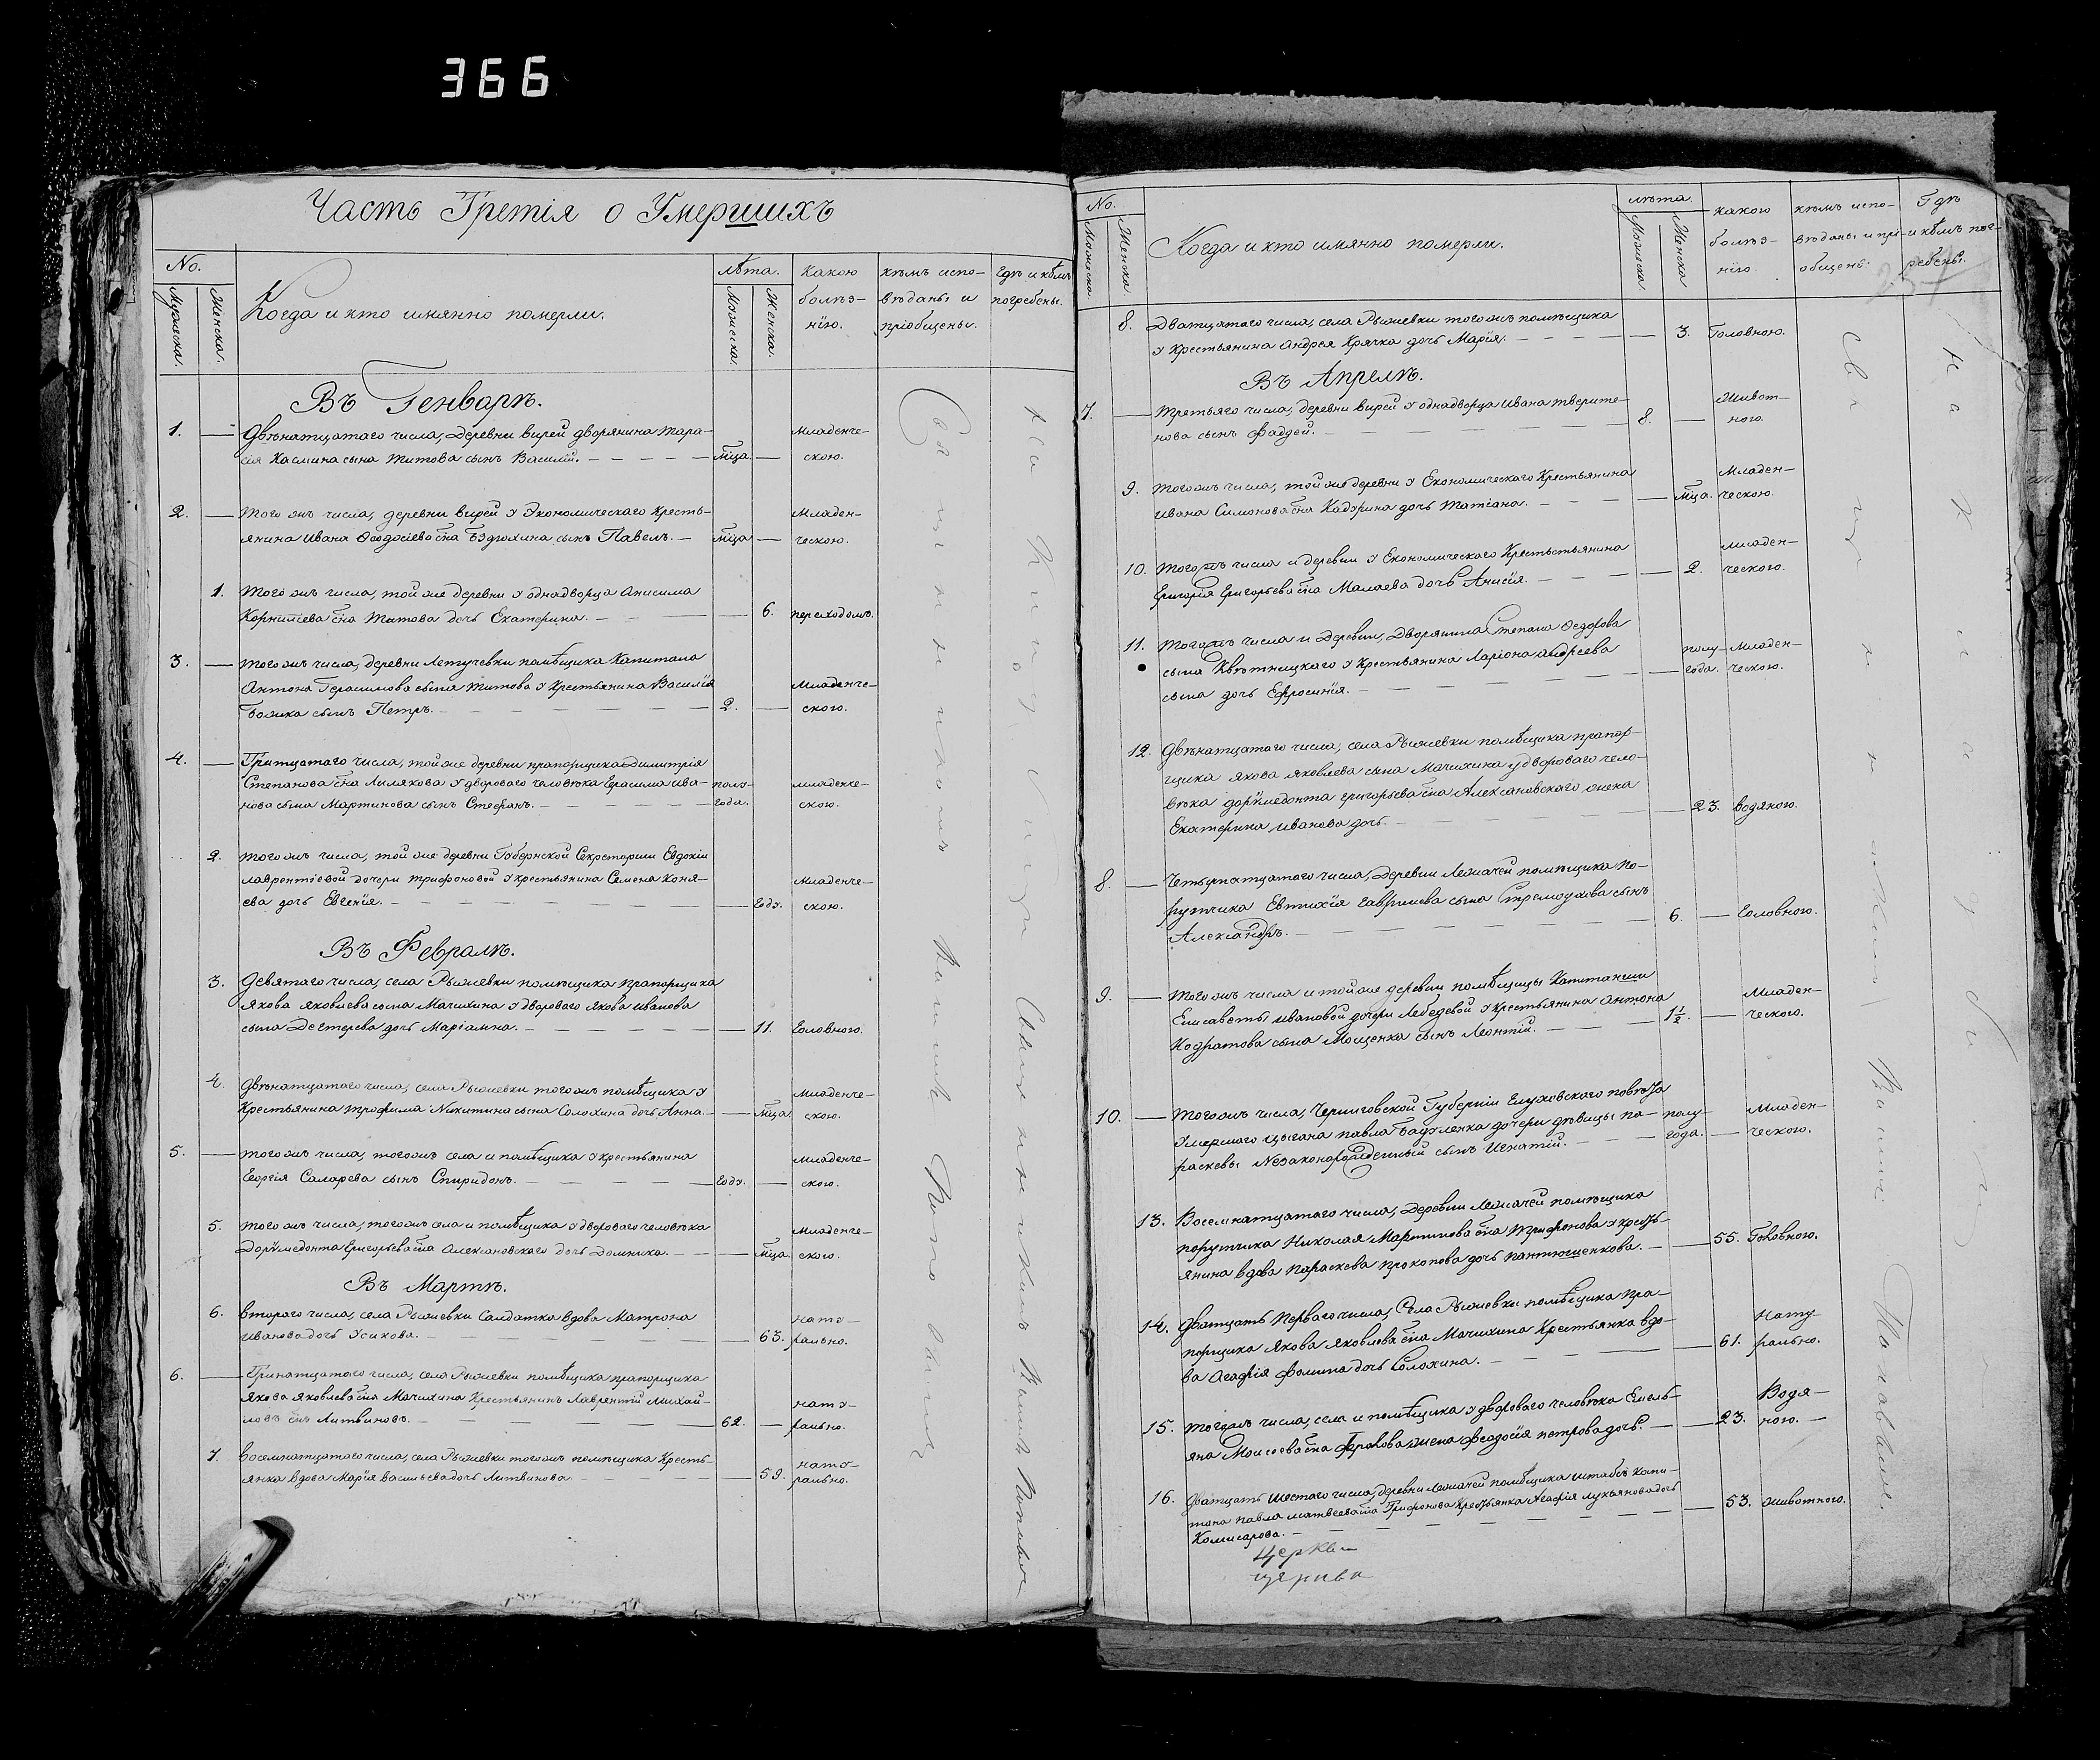 366
Часть Третія о Умершихъ
No.
Мужеска.
Женска.
Когда и кто имянно померли.
лѣта.
Мужеска.
Женска.
какою
болѣз-
нію.
кѣмъ испо-
вѣданы и
пріобщены.
Гдѣ и кѣмъ
погребены.
Въ Генварѣ.
1. — Двѣнатцатаго числа, деревни вирей дворянина Тара-
сія Касмина сына Титова сынъ Василій. — мца — Младенче-
скою.
2. — Того жъ числа, деревни вирей у Экономическаго Кресть-
янина Ивана Ѳеодосіева сна сынъ Павелъ. — мца — Младен-
ческою.
1. Того жъ числа, той же деревни у однадворца Анисима
Корнилiева сна Титова дочь Екатерина. — 6. переходомъ.
3. — Того жъ числа, деревни Летучевки помѣщика Капитана
Антона Герасимова сына Титова у Крестьянина Василія
Божка сынъ Петръ. — 2. — Младенче-
ского.
4. — Тритцатаго числа, той же деревни прапорщика Димитрія
Степанова сна Лилякова у двороваго человѣка Герасима Ива-
нова сына Мартинова сынъ Стефанъ. — полу-
года. младенче-
скою.
2. Того жъ числа, той же деревни Губернской Секретарши Евдокіи
Лаврентіевой дочери Трифоновой у крестьянина Семена Коня-
ева дочь Евгенія. — году. Младенче-
скою.
Въ Февралѣ.
3. Девятаго числа, села Рыжевки помѣщика Прапорщика
Якова Яковлева сына Мачихина у двороваго Якова Иванова
сына Дегтерева дочь Маріамна. — 11. Головною.
4. Двѣнатцатаго числа, села Рыжевки того жъ помѣщика у
Крестьянина Трофима Никитина сына Солохина дочь Анна. — мца Младенче-
скою.
5. — Того жъ числа, того жъ села и помѣщика у крестьянина
Георгія Саларева сынъ Спиридонъ. — году. — Младенче-
скою.
5. Того жъ числа, того жъ села и помѣщика у двороваго человѣка
Доримедонта Григорьева сна Алексановскаго дочь Домника. — мца Младенче-
ского.
Въ Мартѣ.
6. Втораго числа, села Рыжевки Салдатка вдова Матрона
Иванова дочь Усикова. — 63. нату-
рально.
6. — Тринатцатаго числа, села Рыжевки помѣщика прапорщика
Якова Яковлева сна Мачихина Крестьянинъ Лаврентій Михай-
ловъ снъ Литвиновъ. — 62. — нату-
рально.
7. Восемнатцатаго числа, села Рыжевки того жъ помѣщика Кресть-
янка вдова Марія Васильева дочь Литвинова. — 59. нату-
рально.
No.
Мужеска.
Женска.
Когда и кто имянно померли.
лѣта.
Мужеска
Женска
какого
болѣз-
нію.
кѣмъ испо-
вѣданы и прі-
общены.
Гдѣ
и кѣмъ пог-
ребены.
8. Дватцатаго числа, села Рыжевки того жъ помѣщика
у Крестьянина Андрея Крячка дочь Марія. — 3. Головною.
Въ Апрелѣ.
7. — Третьяго числа, деревни вирей у однадворца Ивана Тверите-
нова сынъ Фаддей. — 8. — Живот-
ного.
9. Того жъ числа, той же деревни у Економическаго Крестьянина
Ивана Симонова сна Кадурина дочь Татіана. — мца. Младен-
ческою.
10. Тогожъ числа и деревни у Економическаго Крестьстьянина
Григорія Григорьева сна Малаева дочь Анисія. — 2. младен-
ческого.
11. Тогожъ числа и деревни, Дворянина Степана Федорова
сына Квѣтницкаго у Крестьянина Ларіона Андреева
сына дочь Ефросинія. — полу-
года. Младен-
ческою.
12. Двѣнатцатаго числа, села Рыжевки помѣщика прапор-
щика Якова Яковлева сына Мачихина у двороваго чело-
вѣка Доримедонта Григорьева сна Алексановскаго жена
Екатерина Иванова дочь. — 23. Водяною.
8. — Четырнатцатаго числа, Деревни Лежачей помѣщика по-
рутчика Евтихія Гавриlева сына Стремоухова сынъ
Александръ. — 6. — Головного.
9. — Того жъ числа и той же деревни помѣщицы Капитанши
Елисаветы Ивановой дочери Лебедевой у Крестьянина Антона
Кодратова сына Мощенка сынъ Леонтій. — 1½. — Младен-
ческого.
10. — Того жъ числа, Черниговской Губерніи Глуховского повѣта
умершаго цыгана Павла дочери дѣвицы Па-
раскевы Незаконорожденный сынъ Игнатій. — полу-
года. — Младен-
ческого.
13. Восемнатцатаго числа, Деревни Лежачей помѣщика
порутчика Николая Мартинова сна Трифонова у кресть-
янина вдова Параскева Прокопова дочь Пантюшенкова. — 55. Головною.
14. Дватцать Перваго числа, Села Рыжевки помѣщика Пра-
порщика Якова Яковлева сна Мачихина Крестьянка вдо-
ва Агафія Фомина дочь Солохина. — 61. Нату-
рально.
15. Тогожъ числа, села и помѣщика у двороваго человѣка Емель-
яна Моисеева сна Фролова жена Феодосія Петрова дочь. — 23. Водя-
ною. —
16. Дватцать шестаго числа, деревни Лежачей помѣщика штабсъ Капи-
тана Павла Матвеева сна Трифонова Крестьянка Агафія Лукьянова дочь
Комисарова. — 53. животного.
Церкви